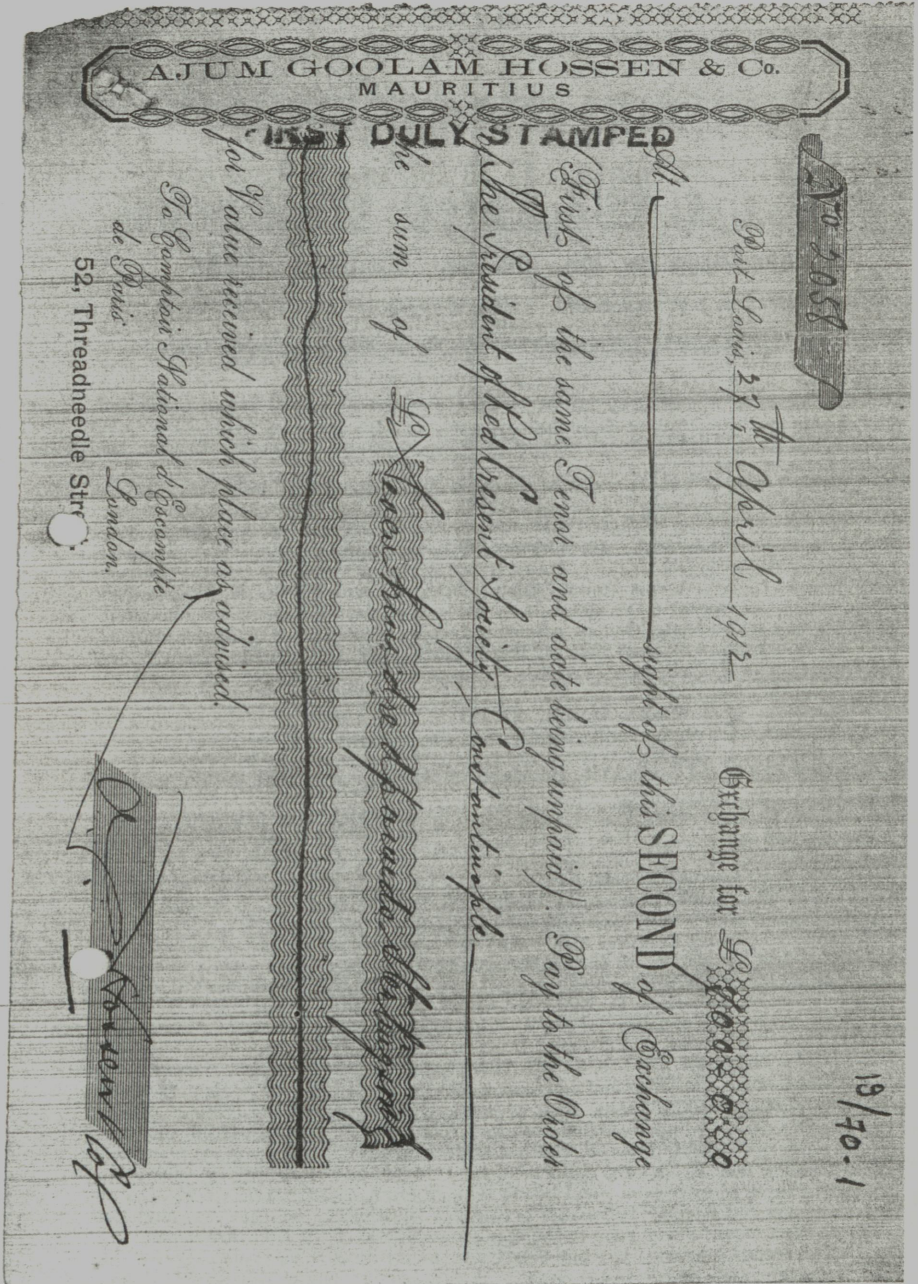 AJUM GOOLAM HOSSEN & Co.
MAURITIUS
FIRST DULY STAMPED
19/70.1
No 2058
Port Louis, 27th April 1912 Exchange for £700.0.0
At sight of this SECOND of Exchange
(First of the same Tenor and date being unpaid). Pay to the Order
of The President of Red Cresent Society Constantinople
the sum of £ Seven hundred pounds Sterling only
for Value received which place as advised.
To Comptoir National d'Escompte
de Paris London.
52, Threadneedle Stre